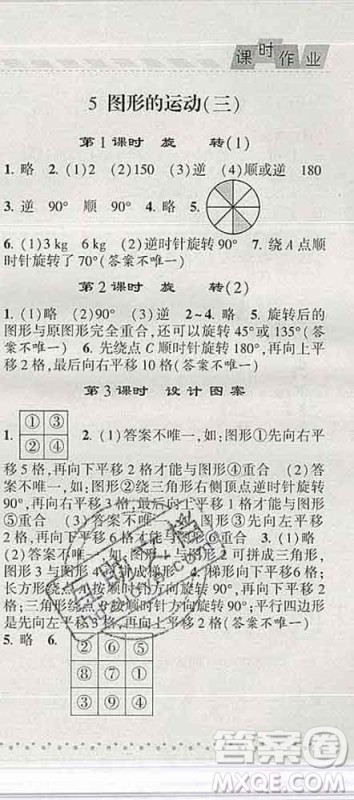 课时作业
5 图形的运动(三)
第1课时 旋 转(1)
1. 略 2. (1)2 (2)150 (3)逆 (4)顺或逆 180
3. 逆 90° 顺 90° 4. 略 5.
6. (1)3 kg 6 kg (2)逆时针旋转90° 7. 绕A点顺
时针旋转了70°(答案不唯一)
第2课时 旋 转(2)
1. 略 (1)顺 90 (2)逆 2~4. 略 5. 旋转后的
图形与原图形完全重合,可以旋转45°或135°(答
案不唯一) 6. 先绕点C顺时针旋转180°,再向上平
移2格,最后向右平移8格(答案不唯一)
第3课时 设计图案
1. ① ③ ② ④ 2. (1)答案不唯一,如:图形①先向右平
移5格,再向下平移2格才能与图形④重合 (2)答
案不唯一,如:图形②绕三角形右侧顶点逆时针旋转
90°,再向右平移5格,再向下平移1格才能与图形
⑤重合 (3)答案不唯一,如:图形③先向右平移
格,再向下平移2格才能与图形
重合 3. 略 (答案不唯一)图形1与图形2可拼成三角形,
图形 与图形3可拼成梯形 4. 梯形向下平移6格;
长方形绕点 按顺时针方向旋转90°,再向右平移1
格;三角形绕点B按顺时针方向旋转90°;平行四边形
是先向右平移 格,再向上平移2格(答案不唯一)
5. 略 6.
② ⑥ ⑦
③ ① ⑧
⑤ ⑨ ④
答案圈
MXQE.COM